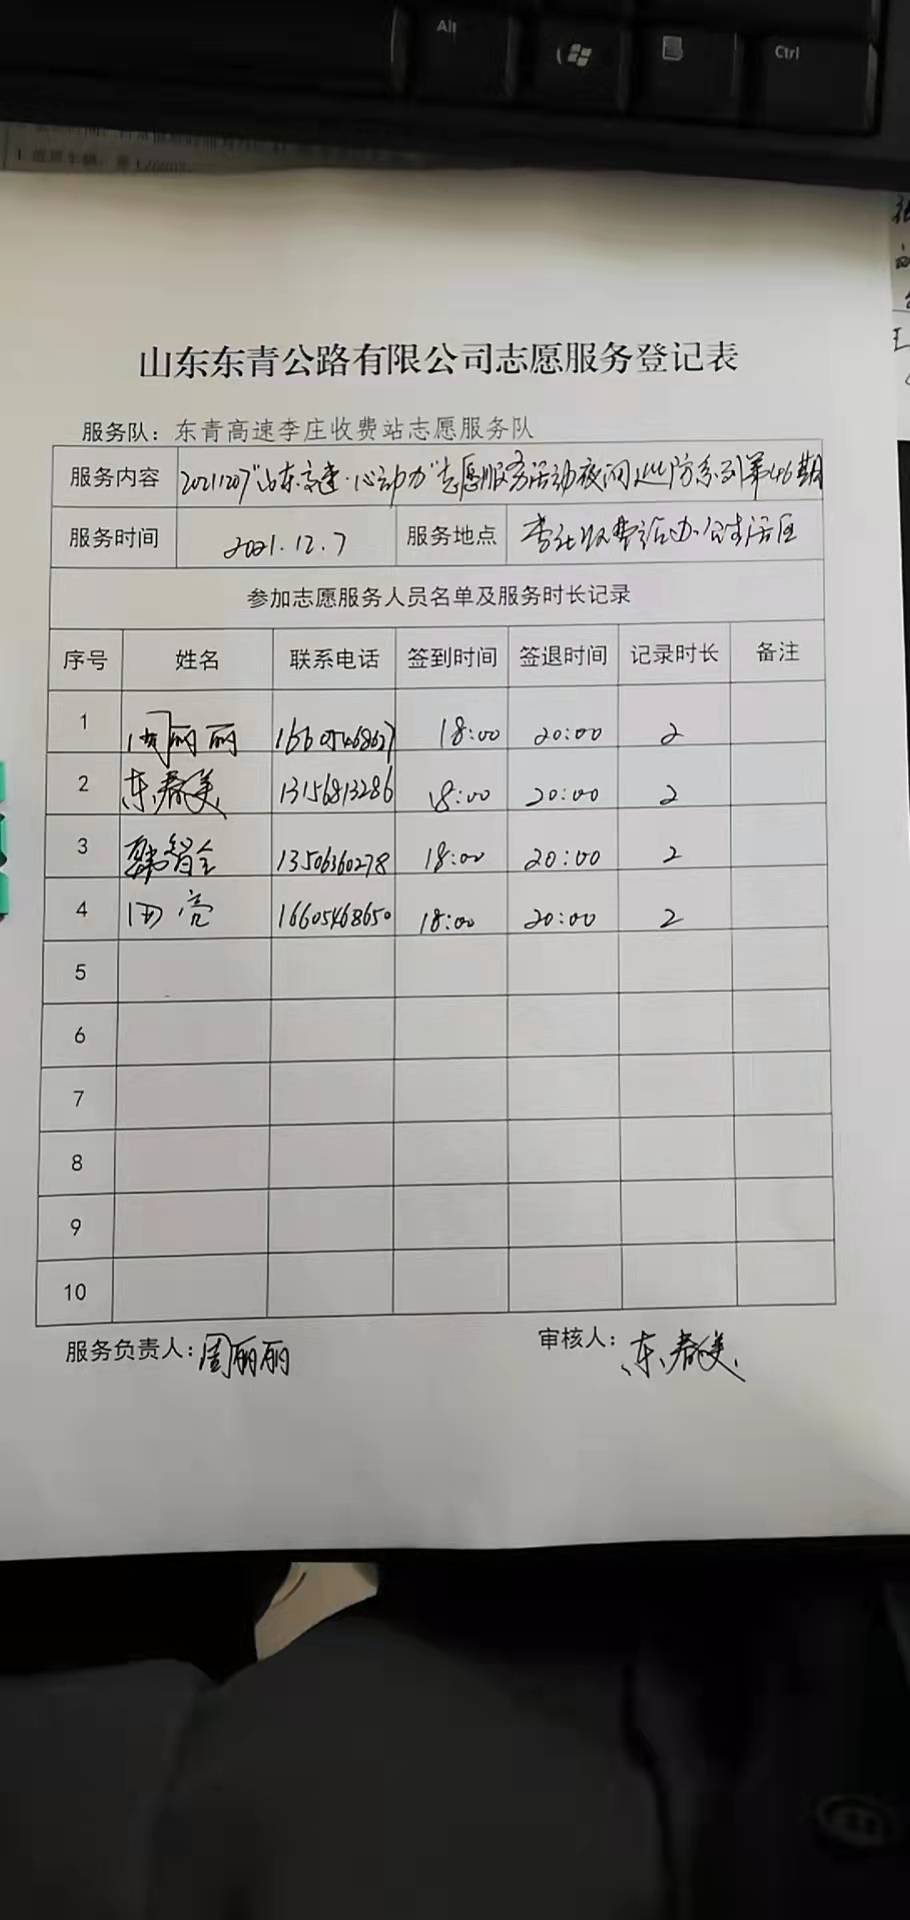 Alt
Ctrl
山东东青公路有限公司志愿服务登记表
服务队：东青高速李庄收费站志愿服务队
服务内容 20211207"山东高速·心动力"志愿服务活动夜间巡防系列第46期
服务时间 2021.12.7 服务地点 李庄收费站办公生活区
参加志愿服务人员名单及服务时长记录
序号 姓名 联系电话 签到时间 签退时间 记录时长 备注
1 周丽丽 16605468627 18:00 20:00 2
2 东春美 13156813286 18:00 20:00 2
3 韩智全 13506360278 18:00 20:00 2
4 田亮 16605468650 18:00 20:00 2
5
6
7
8
9
10
服务负责人：周丽丽 审核人：东春美